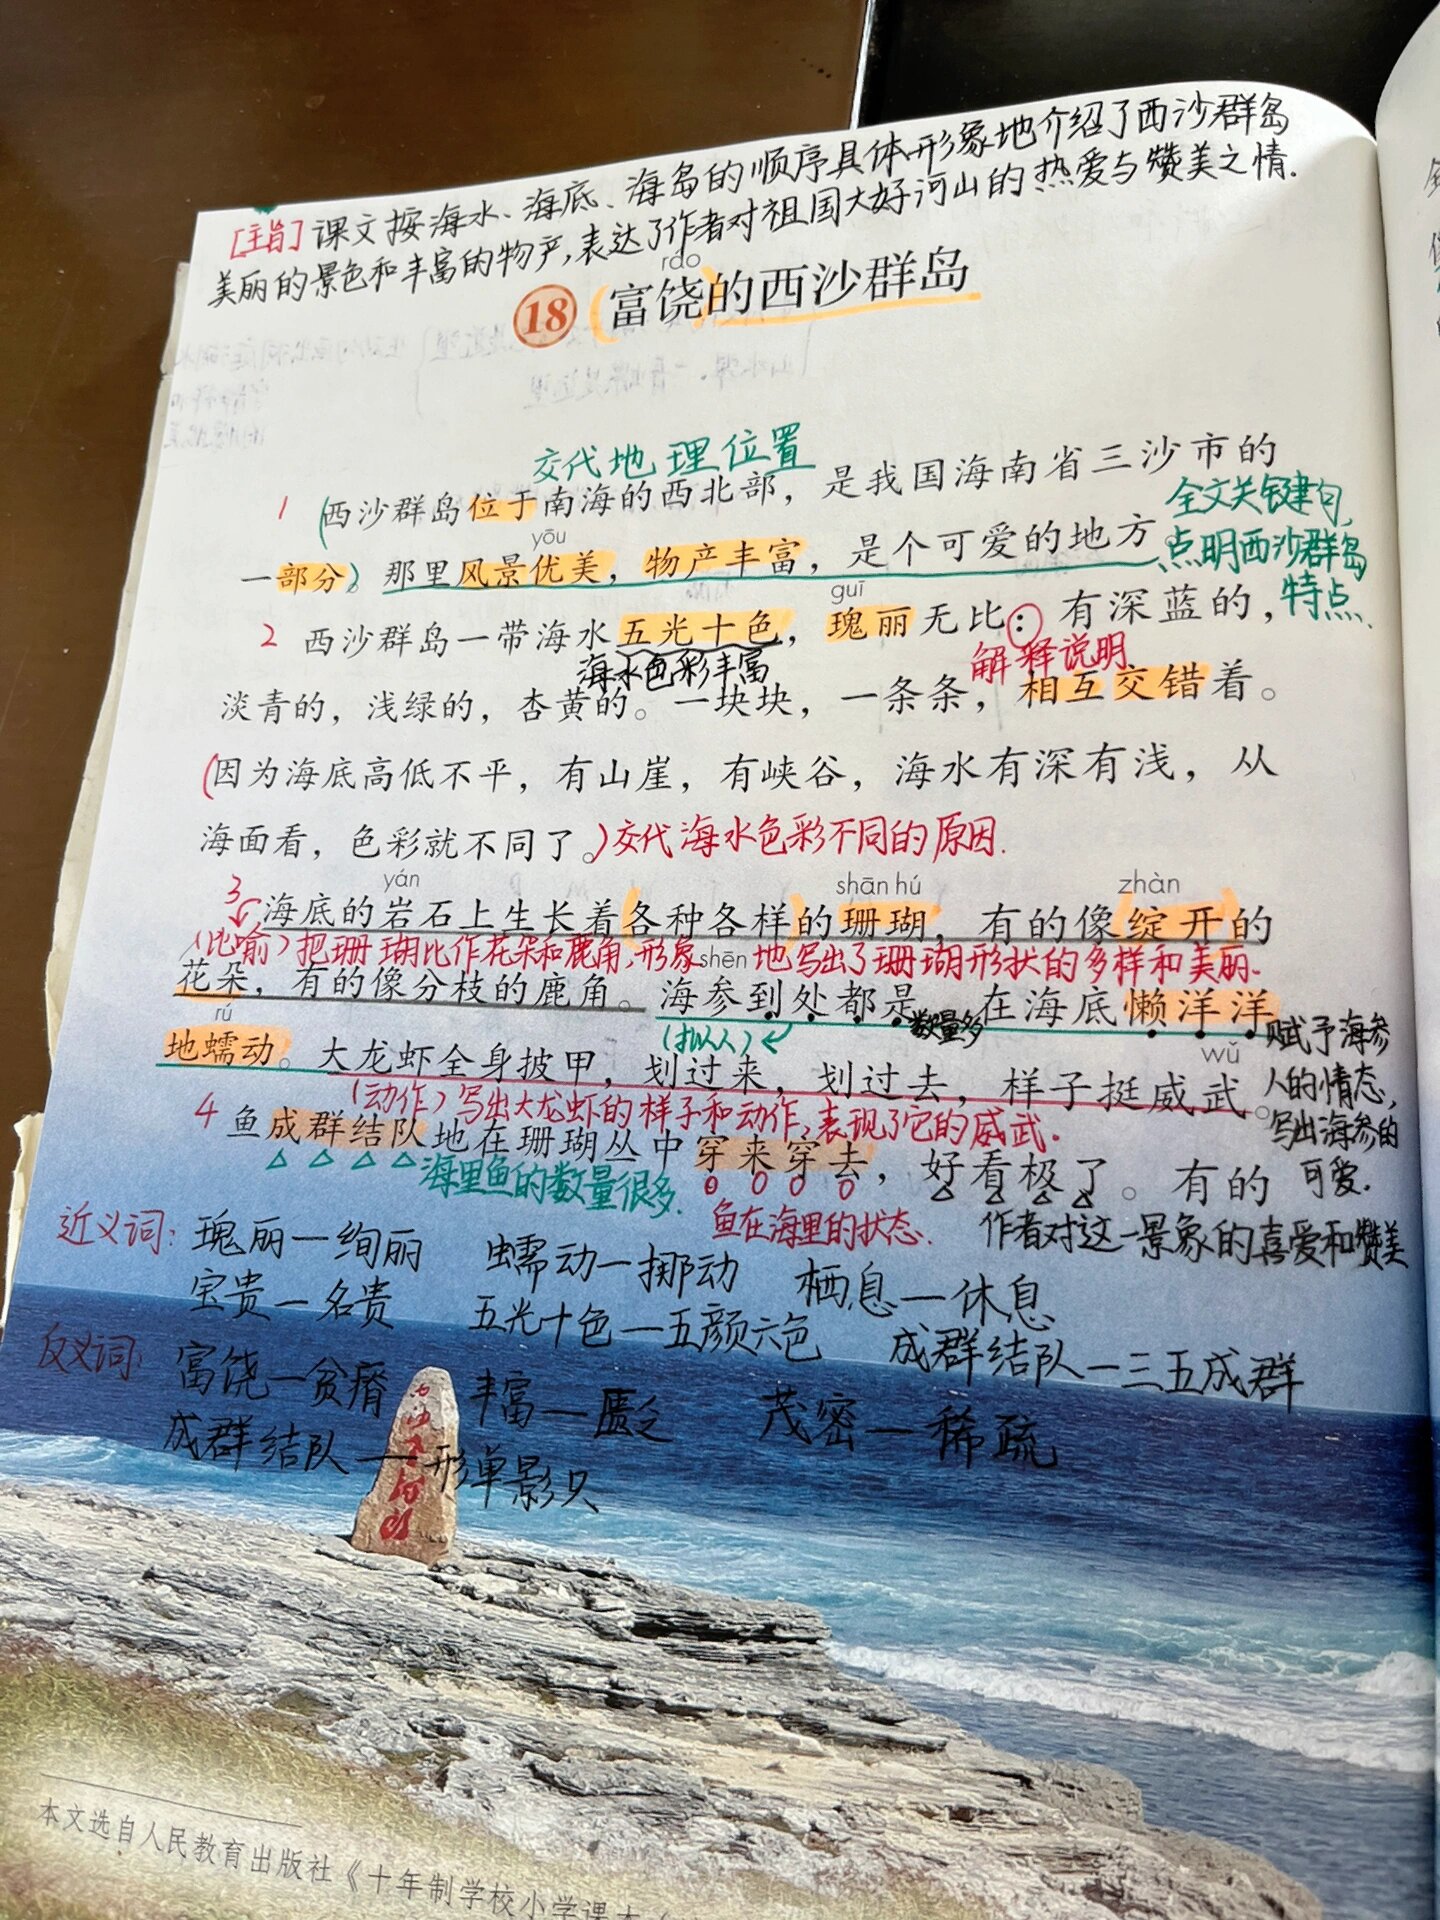 [主旨] 课文按海水、海底、海岛的顺序具体形象地介绍了西沙群岛
美丽的景色和丰富的物产,表达了作者对祖国大好河山的热爱与赞美之情.
ráo
18 富饶的西沙群岛
交代地理位置
1 西沙群岛位于南海的西北部，是我国海南省三沙市的
全文关键句,
点明西沙群岛
特点.
yōu
一部分。那里风景优美，物产丰富，是个可爱的地方。
guī
2 西沙群岛一带海水五光十色，瑰丽无比：有深蓝的，
海水色彩丰富
解释说明
淡青的，浅绿的，杏黄的。一块块，一条条，相互交错着。
(因为海底高低不平，有山崖，有峡谷，海水有深有浅，从
海面看，色彩就不同了。)交代海水色彩不同的原因.
yán shān hú zhàn
3 海底的岩石上生长着(各种各样)的珊瑚，有的像绽开的
(比喻)把珊瑚比作花朵和鹿角,形象地写出了珊瑚形状的多样和美丽.
shēn
花朵，有的像分枝的鹿角。海参到处都是，在海底懒洋洋
数量多
(拟人)
rú wǔ
地蠕动。大龙虾全身披甲，划过来，划过去，样子挺威武。
赋予海参
人的情态,
写出海参的
可爱.
(动作)写出大龙虾的样子和动作,表现了它的威武.
4 鱼成群结队地在珊瑚丛中穿来穿去，好看极了。有的
海里鱼的数量很多.
鱼在海里的状态.
作者对这一景象的喜爱和赞美
近义词: 瑰丽—绚丽 蠕动—挪动 栖息—休息
宝贵—名贵 五光十色—五颜六色 成群结队—三五成群
反义词: 富饶—贫瘠 丰富—匮乏 茂密—稀疏
成群结队—形单影只
本文选自人民教育出版社《十年制学校小学课本